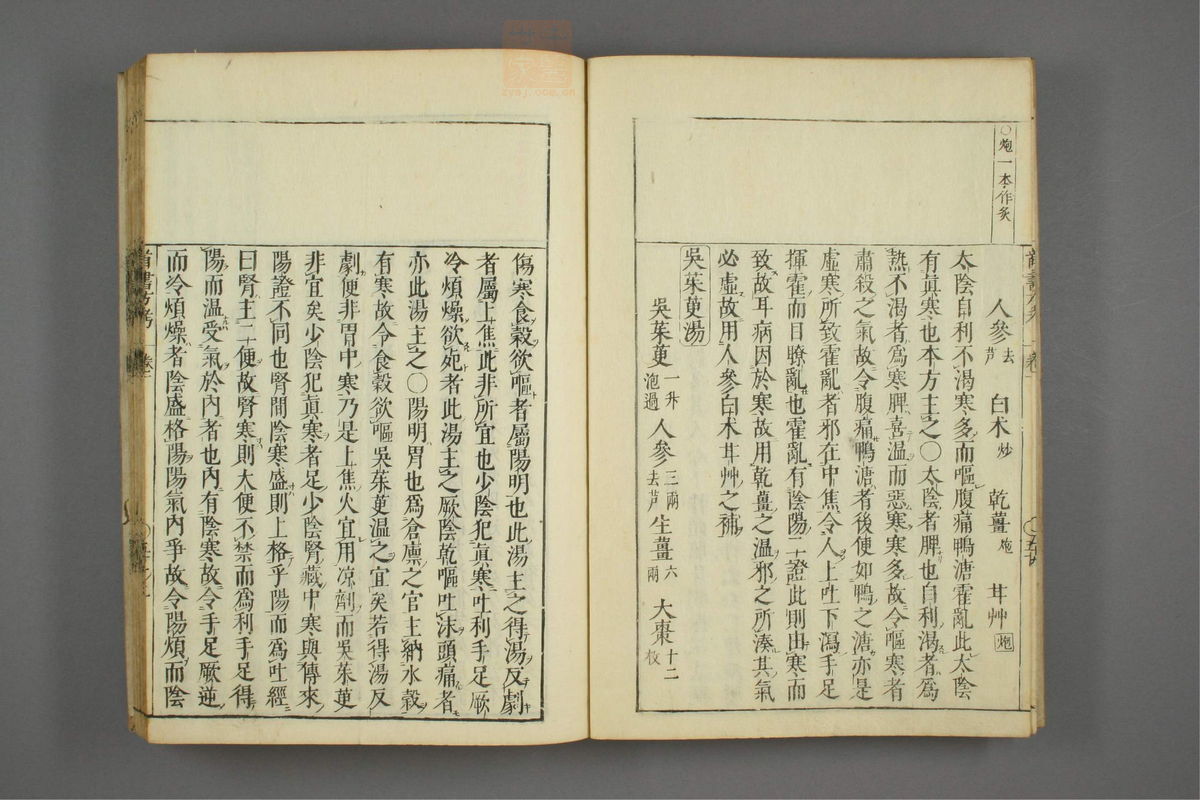 ○炮一本作炙
人參去芦 白朮炒 乾薑炮 甘艸炮
太陰自利不渴寒多而嘔腹痛鴨溏霍亂此太陰
有眞寒也本方主之○太陰者脾也自利渴者爲
熱不渴者爲寒脾喜温而惡寒寒多故令嘔寒者
肅殺之氣故令腹痛鴨溏者後便如鴨之溏亦是
虛寒所致霍亂者邪在中焦令人上吐下瀉手足
揮霍而目瞭亂也霍亂有陰陽二證此則由寒而
致故耳病因於寒故用乾薑之温邪之所湊其氣
必虛故用人參白朮甘艸之補
吳茱萸湯
吳茱萸一升泡過 人參三兩去芦 生薑六兩 大棗十二枚
傷寒食穀欲嘔者屬陽明也此湯主之得湯反劇
者屬上焦此非所宜也少陰犯眞寒吐利手足厥
冷煩燥欲死者此湯主之厥陰乾嘔吐沫頭痛者
亦此湯主之○陽明胃也爲倉廩之官主納水穀
有寒故令食穀欲嘔吳茱萸温之宜矣若得湯反
劇便非胃中寒乃是上焦火宜用凉劑而吳茱萸
非宜矣少陰犯眞寒者足少陰腎藏中寒與傳來
陽證不同也腎間陰寒盛則上格乎陽而爲吐經
曰腎主二便故腎寒則大便不禁而爲利手足得
陽而温受氣於内者也内有陰寒故令手足厥逆
而冷煩燥者陰盛格陽陽氣内爭故令陽煩而陰